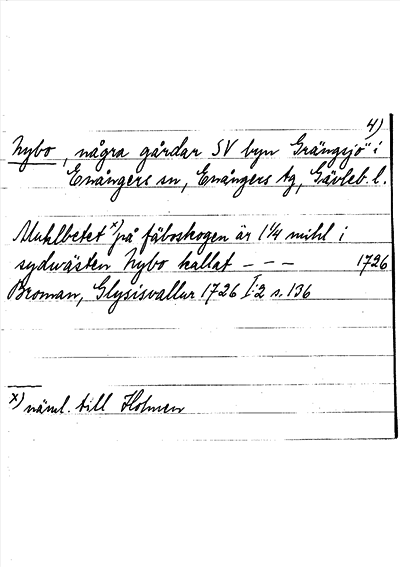 4)
Nybo, några gårdar SV byn Grängsjö i
Enångers sn, Enångers tg, Gävleb. l.
Muhlbetet x) på fäboskogen är 1 1/4 mihl i
sydwästen Nybo kallat – – – 1726
Broman, Glysisvallur 1726 I:2 s. 136
x) näml. till Holmen